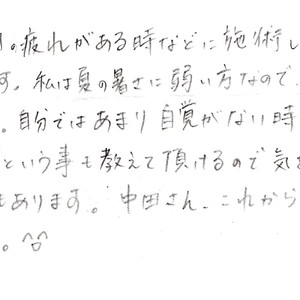 の疲れがある時などに施術し
す。私は夏の暑さに弱い方なので、
。自分ではあまり自覚がない時
という事も教えて頂けるので気
もあります。中田さん、これから
。^^